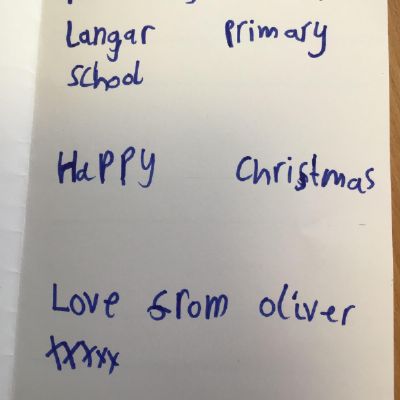 Langar primary
school
HaPPy Christmas
Love from oliver
xxxxx